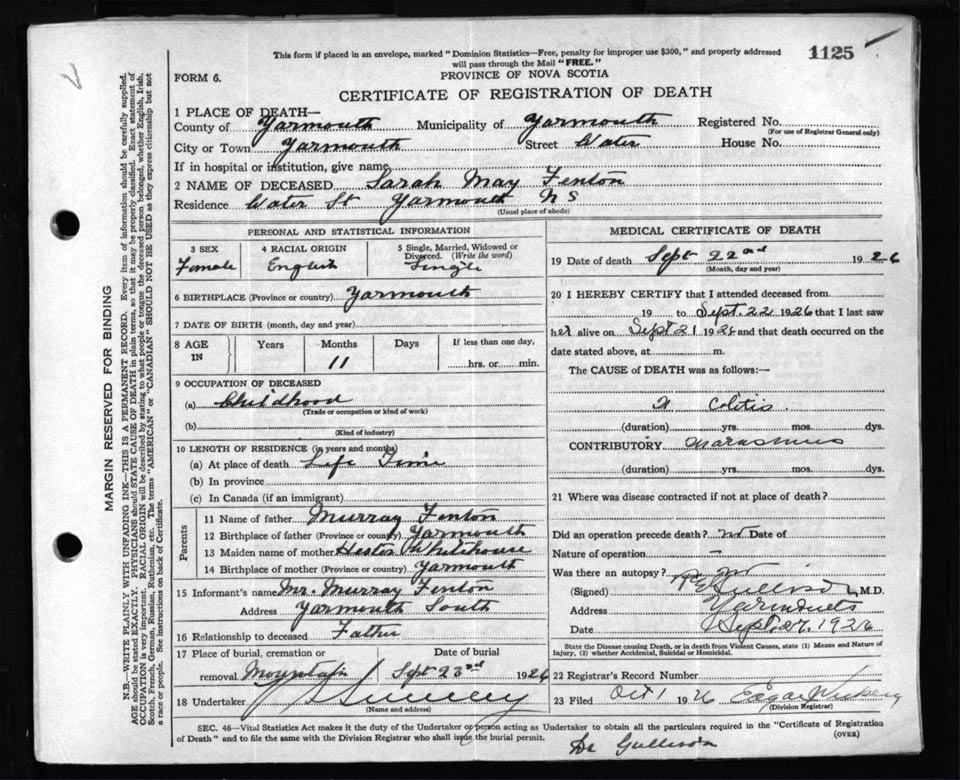 This form if placed in an envelope, marked "Dominion Statistics—Free, penalty for improper use $300," and properly addressed
will pass through the Mail "FREE."
1125
FORM 6.
PROVINCE OF NOVA SCOTIA
CERTIFICATE OF REGISTRATION OF DEATH
1 PLACE OF DEATH—
County of Yarmouth Municipality of Yarmouth Registered No.
(For use of Registrar General only)
City or Town Yarmouth Street Water House No.
If in hospital or institution, give name
2 NAME OF DECEASED Sarah May Fenton
Residence Water St Yarmouth N S
(Usual place of abode)
PERSONAL AND STATISTICAL INFORMATION
3 SEX 4 RACIAL ORIGIN 5 Single, Married, Widowed or
Divorced. (Write the word)
Female English Single
6 BIRTHPLACE (Province or country) Yarmouth
7 DATE OF BIRTH (month, day and year)
8 AGE IN Years Months Days If less than one day,
11 hrs. or min.
9 OCCUPATION OF DECEASED
(a) Childhood
(Trade or occupation or kind of work)
(b)
(Kind of industry)
10 LENGTH OF RESIDENCE (in years and months)
(a) At place of death Life Time
(b) In province
(c) In Canada (if an immigrant)
Parents
11 Name of father Murray Fenton
12 Birthplace of father (Province or country) Yarmouth
13 Maiden name of mother Hester Whitehouse
14 Birthplace of mother (Province or country) Yarmouth
15 Informant's name Mr. Murray Fenton
Address Yarmouth South
16 Relationship to deceased Father
17 Place of burial, cremation or Date of burial
removal Mountain Sept 23rd 1926
18 Undertaker
(Name and address)
MEDICAL CERTIFICATE OF DEATH
19 Date of death Sept 22nd 1926
(Month, day and year)
20 I HEREBY CERTIFY that I attended deceased from
19 to Sept. 22 1926 that I last saw
her alive on Sept 21 1926 and that death occurred on the
date stated above, at m.
The CAUSE of DEATH was as follows:—
Colitis.
(duration) yrs. mos. dys.
CONTRIBUTORY Marasmus
(duration) yrs. mos. dys.
21 Where was disease contracted if not at place of death?
Did an operation precede death? no Date of
Nature of operation —
Was there an autopsy? no
(Signed) M.D.
Address Yarmouth
Date Sept. 27, 1926
State the Disease causing Death, or in death from Violent Causes, state (1) Means and Nature of
Injury, (2) whether Accidental, Suicidal or Homicidal.
22 Registrar's Record Number
23 Filed Oct 1 1926 Edgar
(Division Registrar)
SEC. 46—Vital Statistics Act makes it the duty of the Undertaker or person acting as Undertaker to obtain all the particulars required in the "Certificate of Registration
of Death" and to file the same with the Division Registrar who shall issue the burial permit.
(OVER)
Dr Gullison
MARGIN RESERVED FOR BINDING
N.B.—WRITE PLAINLY WITH UNFADING INK—THIS IS A PERMANENT RECORD. Every item of information should be carefully supplied.
AGE should be stated EXACTLY. PHYSICIANS should STATE CAUSE OF DEATH in plain terms, so that it may be properly classified. Exact statement of
OCCUPATION is very important. RACIAL ORIGIN will be described by stating to what people or tongue the deceased person belonged, whether English, Irish,
Scotch, French, German, Russian, Ruthenian, etc. The terms "AMERICAN" or "CANADIAN" SHOULD NOT BE USED as they express citizenship but not
a race or people. See instructions on back of Certificate.